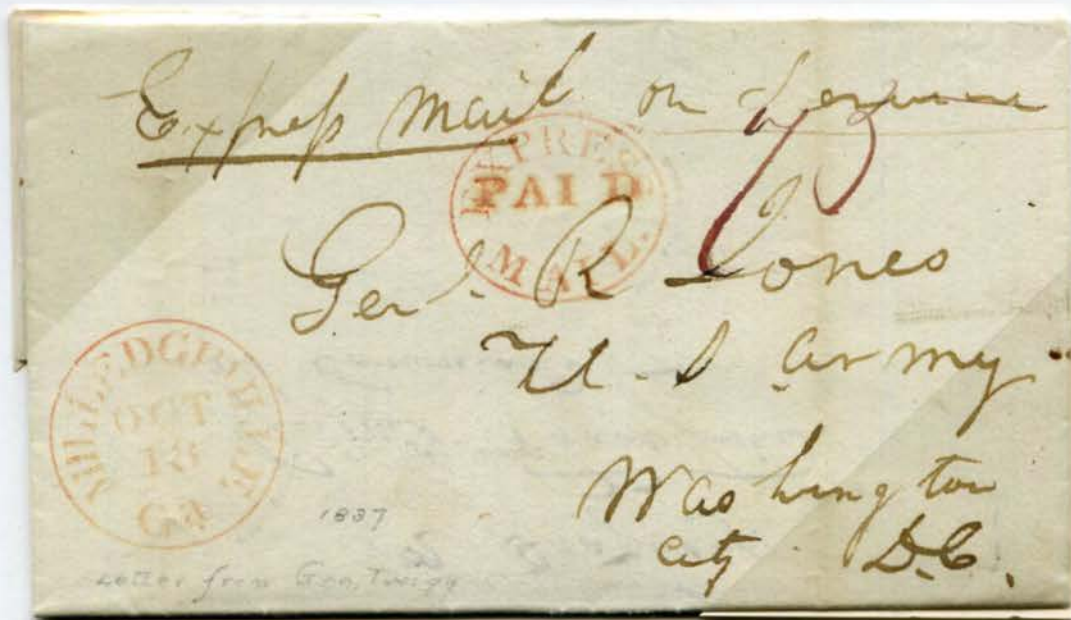 Express Mail on Service
EXPRESS
PAID
MAIL.
Genl. R Jones
U. S army
Washington
City D.C.
MILLEDGEVILLE
OCT
18
Ga
1837
Letter from Gen. Twiggs